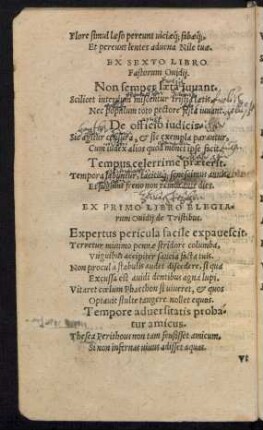 Flore simul læso pereunt uiciæq; fabæq;,
Et pereunt lentes aduena Nile tuæ.
EX SEXTO LIBRO
Fastorum Ouidij.
Non semper læta iuuant.
Scilicet interdum miscentur tristia lætis,
Nec populum toto pectore festa iuuant.
De officio iudicis.
Sic agitur censura, & sic exempla parantur,
Cum iudex alios quod monet ipse facit.
Tempus celerrime præterit.
Tempora labuntur, tacitisq; senescimus annis,
Et fugiunt freno non remorante dies.
EX PRIMO LIBRO ELEGIA-
rum Ouidij de Tristibus.
Expertus pericula facile expauescit.
Terretur minimo pennæ stridore columba,
Vnguibus accipiter saucia facta tuis.
Non procul à stabulis audet discedere, si qua
Excussa est auidi dentibus agna lupi.
Vitaret cœlum Phaethon si uiueret, & quos
Optauit stulte tangere nollet equos.
Tempore aduersitatis proba-
tur amicus.
Thesea Perithous non tam sensisset amicum,
Si non infernas uiuus adisset aquas.
VI